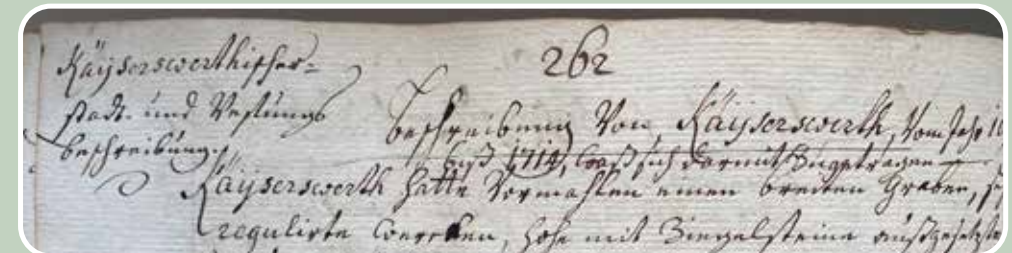 262
Kaÿserswerthischer-
stadt- und Vestungs
beschreibung.
Beschreibung Von Kaÿserswerth, Vom Jahr
biß 1714, waß sich darmit Zugetragen
Kaÿserswerth hatte Vormahlen einen breiten Graben,
regulirte Wercken, hohe mit Ziegelsteine außgesetzte